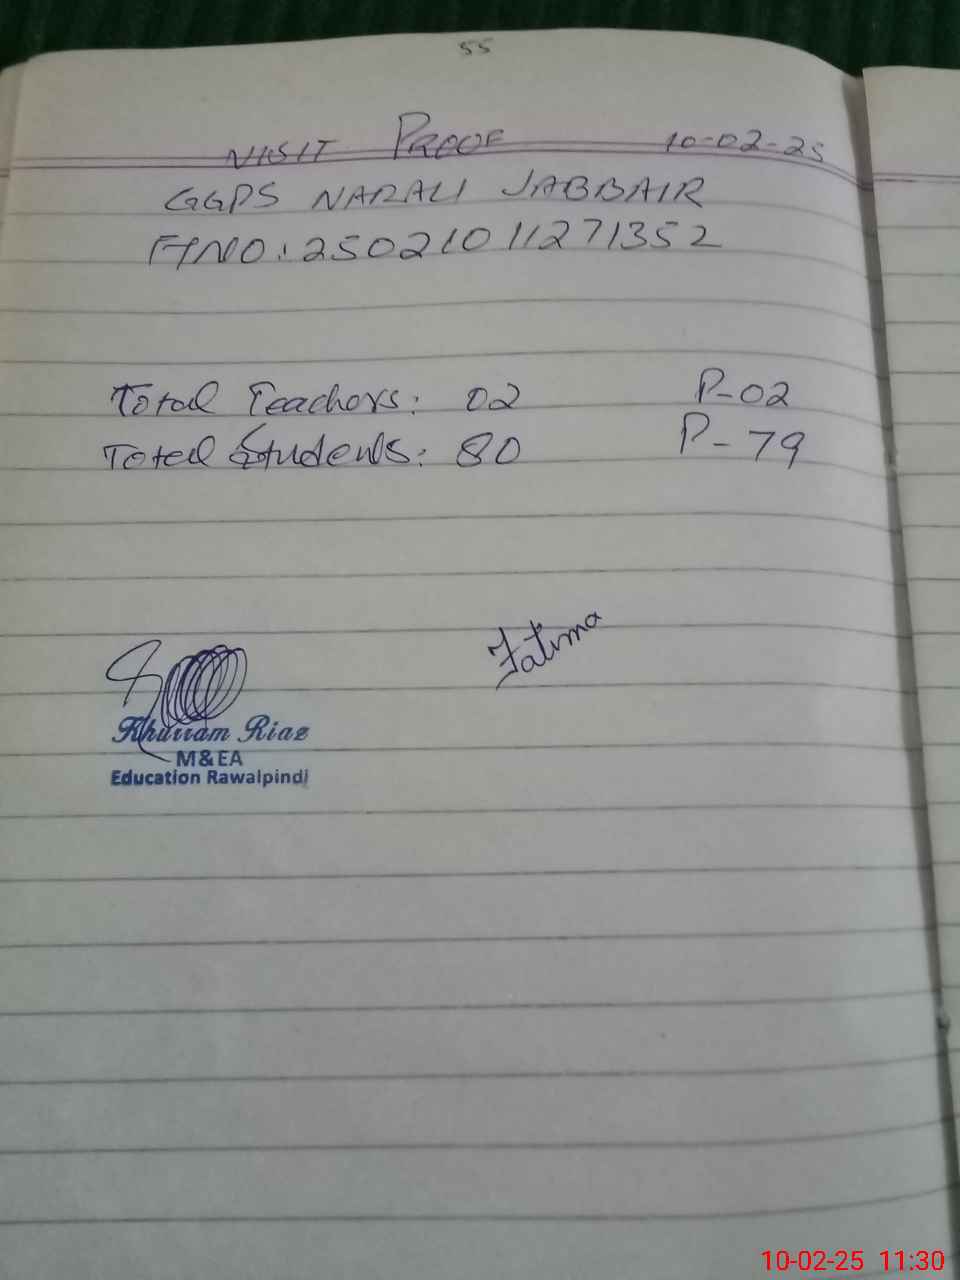 55
VISIT PROOF 10-02-25
GGPS NARALI JABBAIR
F/NO: 25021011271352
Total Teachers: 02 P-02
Total Students: 80 P-79
Fatima
Khurram Riaz
M&EA
Education Rawalpindi
10-02-25 11:30